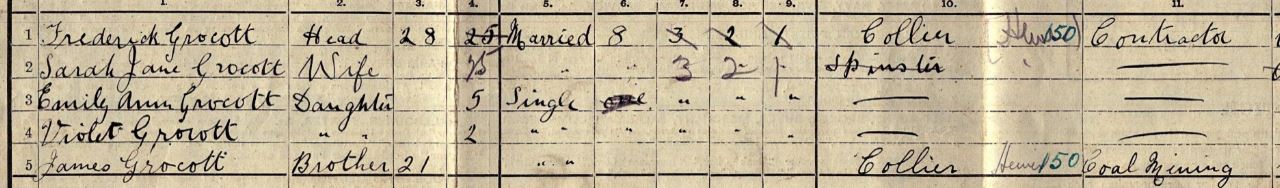 1. 2. 3. 4. 5. 6. 7. 8. 9. 10. 11.
1 Frederick Grocott Head 28 25 Married 8 3 2 1 Collier Hewer 150 Contractor
2 Sarah Jane Grocott Wife 25 " " 3 2 1 Spinster —
3 Emily Ann Grocott Daughter 5 Single one " " " — —
4 Violet Grocott " " 2 " " " " " — —
5 James Grocott Brother 21 " " Collier Hewer 150 Coal Mining